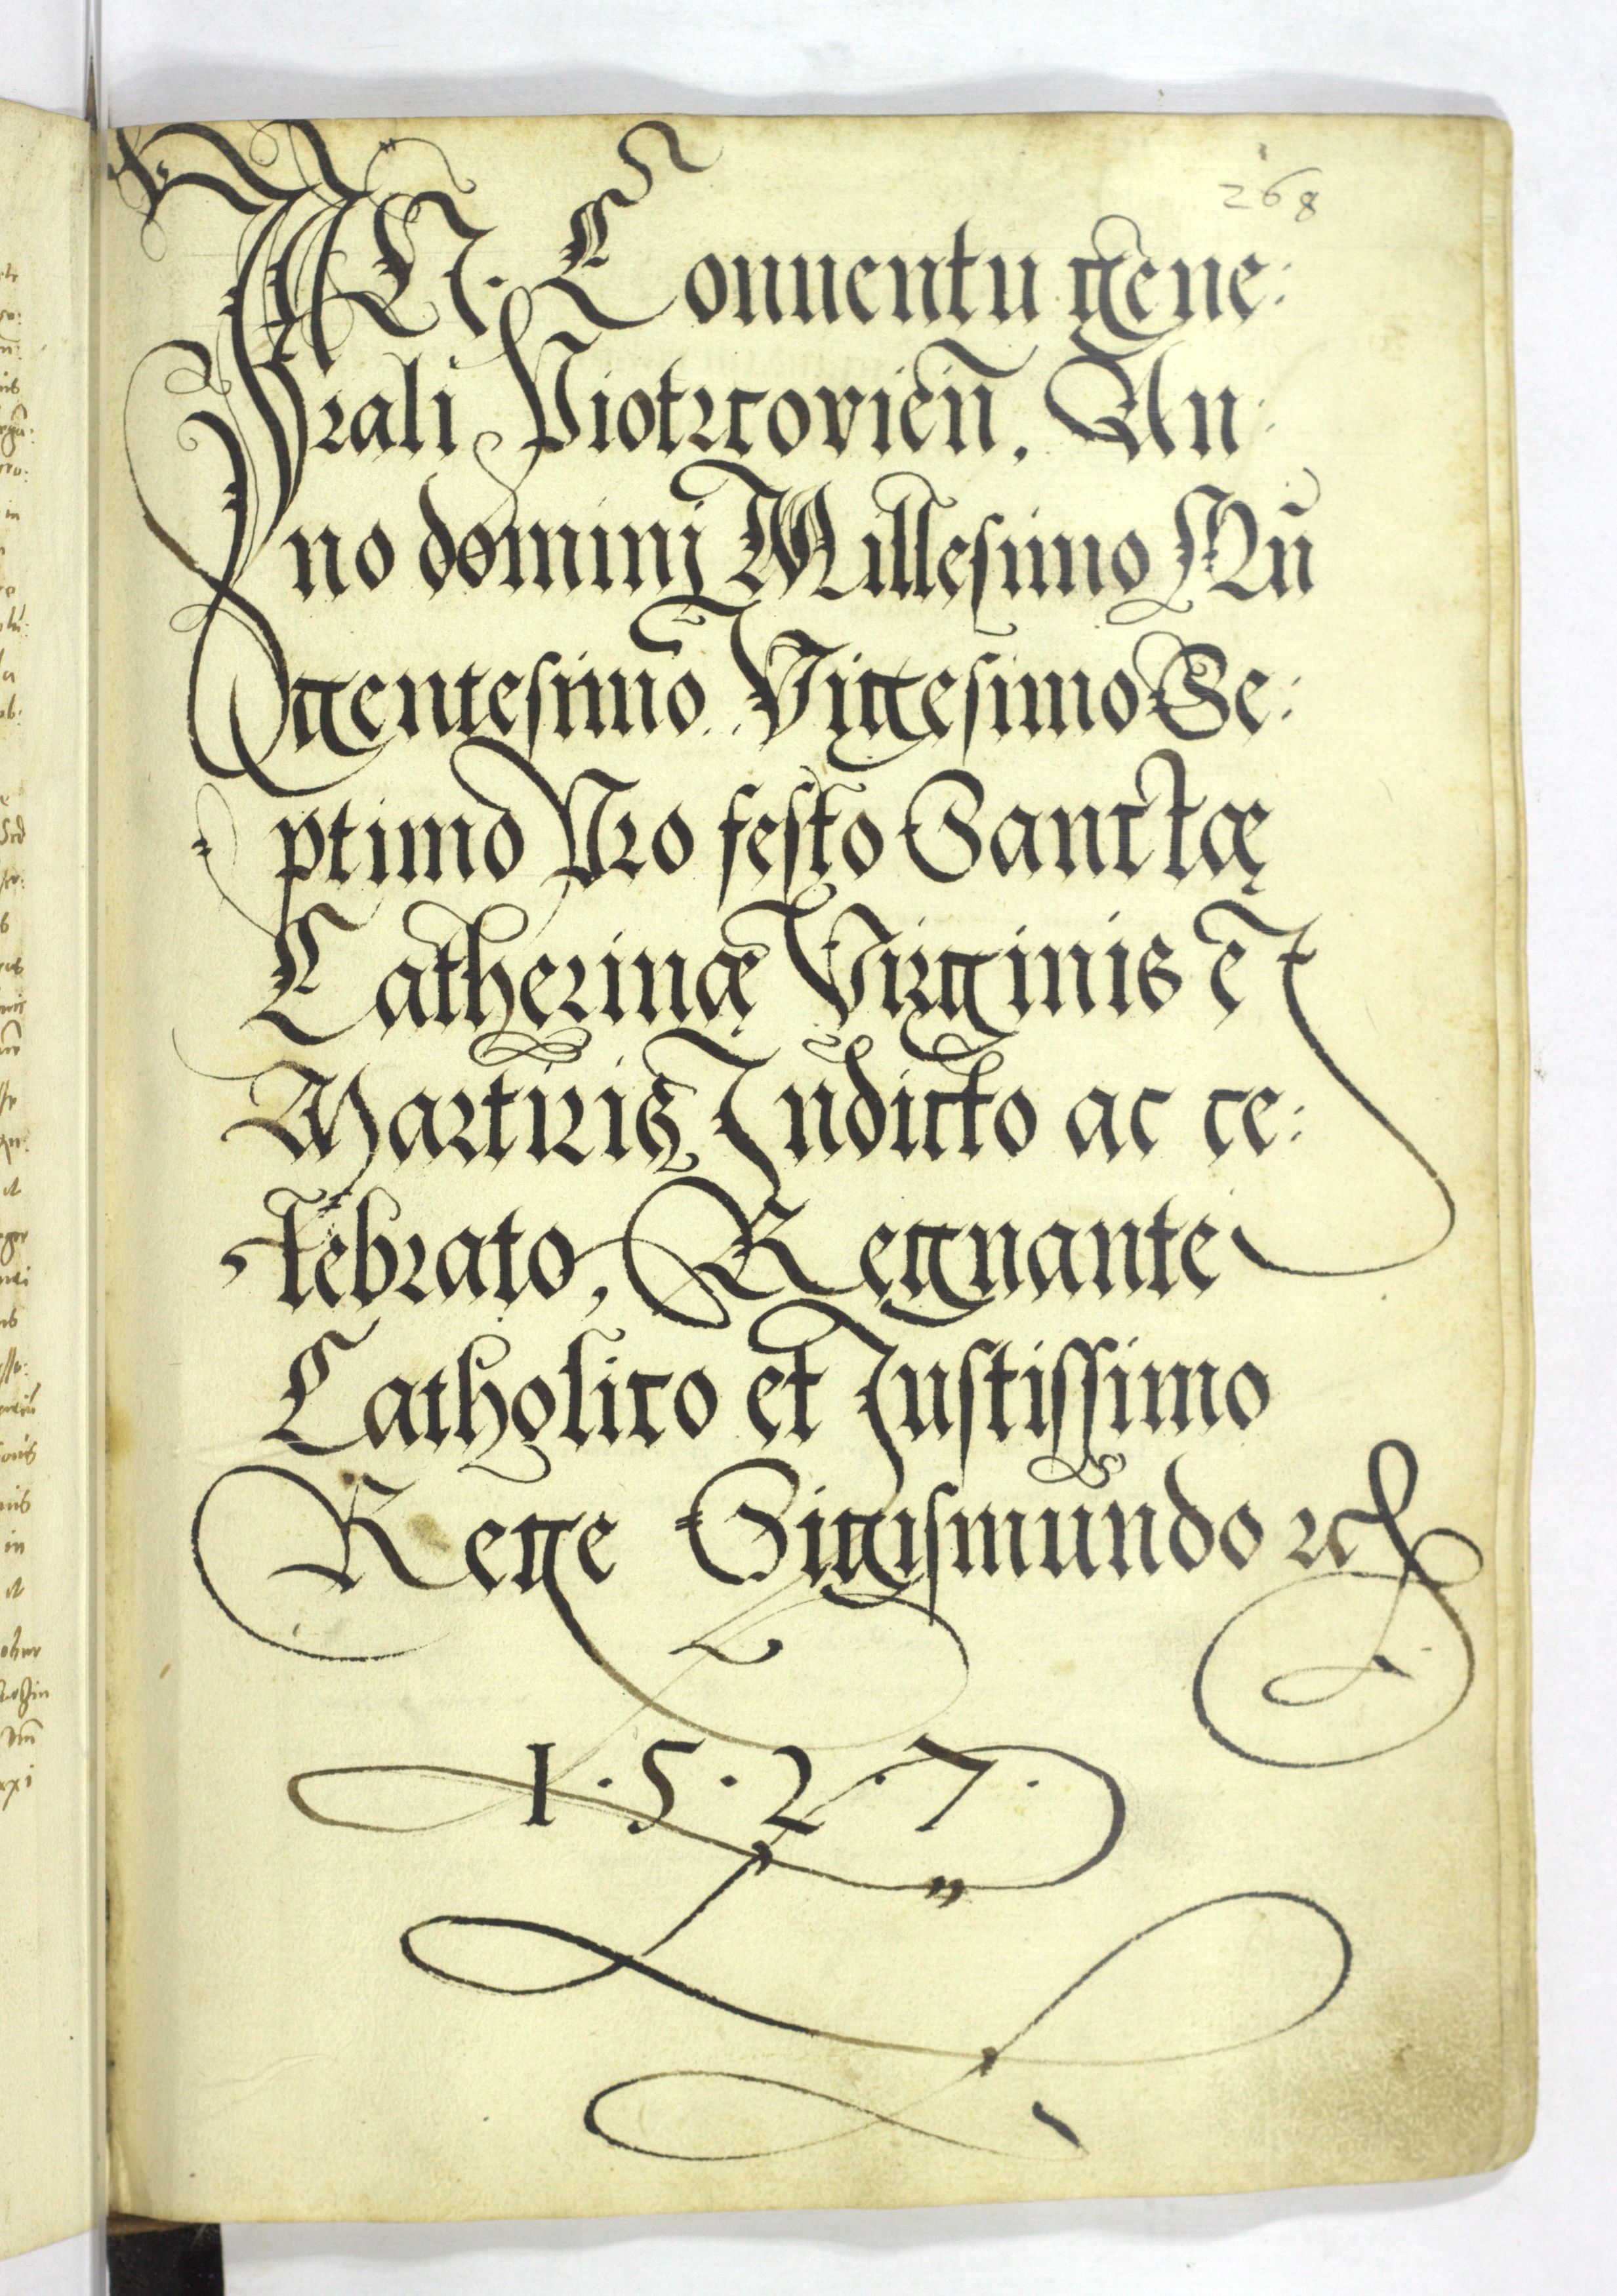 268
IN. Conuentu gene:
rali Piotrcovien̄. An:
no dominj Millesimo Qui͂n
gentesimo. Vigesimo Se:
ptimo Pro festo Sanctæ
Catherinæ Virginis et
Martiris Indicto ac ce:
lebrato, Regnante
Catholico et Justissimo
Rege Sigismundo &c
1·5·2·7·